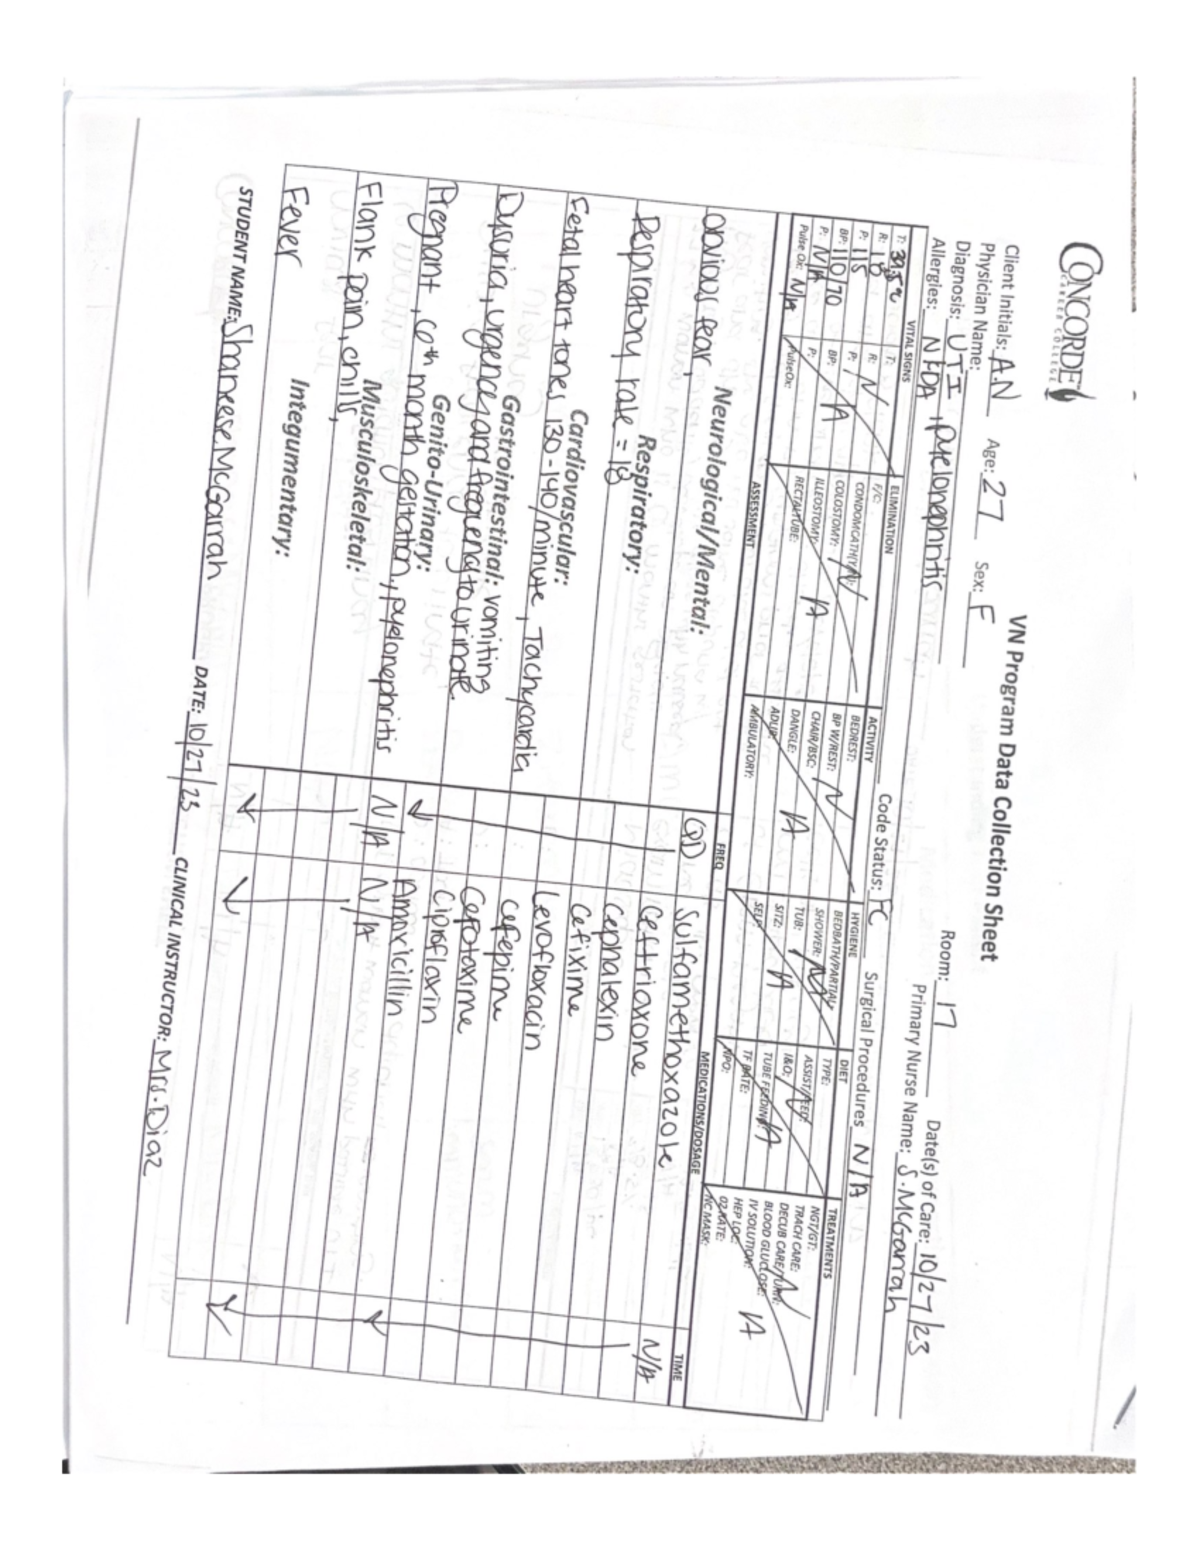 CONCORDE
CAREER COLLEGE
VN Program Data Collection Sheet
Client Initials: A.N Age: 27 Sex: F Room: 17 Date(s) of Care: 10/27/23
Physician Name: Primary Nurse Name: S.McGarrah
Diagnosis: UTI, pyelonephritis Code Status: FC Surgical Procedures N/A
Allergies: NKDA
VITAL SIGNS ELIMINATION ACTIVITY HYGIENE DIET TREATMENTS
T: 39.5°c T: F/C: BEDREST: BEDBATH/PARTIAL TYPE: NGT/GT:
R: 18 R: CONDOMCATH(Y/N): BP W/REST: SHOWER: ASSIST/FEED: TRACH CARE:
P: 115 P: COLOSTOMY: CHAIR/BSC: TUB: I&O: DECUB CARE/TURN:
BP: 110/70 BP: ILLEOSTOMY: DANGLE: SITZ: TUBE FEEDING: BLOOD GLUCLOSE:
P: N/A P: RECTALTUBE: ADLIB: SELF: TF RATE: IV SOLUTION:
Pulse Ox: N/A PulseOx: AMBULATORY: NPO: HEP LOC:
02 RATE:
NC MASK:
N/A N/A N/A N/A N/A N/A
ASSESSMENT FREQ MEDICATIONS/DOSAGE TIME
Neurological/Mental: QD Sulfamethoxazole N/A
obvious fear, Ceftriaxone
Respiratory: Cephalexin
Respiratory rate = 18 Cefixime
Cardiovascular: Levofloxacin
Fetal heart tones 130-140/minute, Tachycardia
Gastrointestinal: vomiting cefepime
Dysuria, urgency and frequency to urinate Cefotoxime
Genito-Urinary: Ciprofloxin
Pregnant, 6th month gestation, pyelonephritis Amoxicillin
Musculoskeletal: N/A N/A
Flank pain, chills,
Integumentary:
Fever
STUDENT NAME: Shaneese.McGarrah DATE: 10/27/23 CLINICAL INSTRUCTOR: Mrs.Diaz